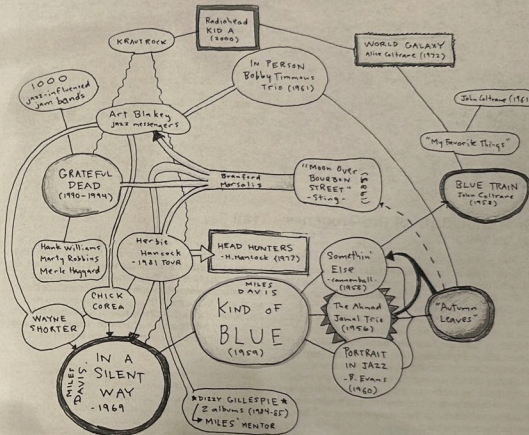 KRAUTROCK
Radiohead
KID A
(2000)
WORLD GALAXY
Alice Coltrane (1972)
1000
jazz-influenced
jam bands
IN PERSON
Bobby Timmons
Trio (1961)
John Coltrane (1961)
Art Blakey
jazz messengers
"My Favorite Things"
GRATEFUL
DEAD
(1990-1994)
Branford
Marsalis
"Moon Over
BOURBON
STREET"
-Sting-
(1985)
BLUE TRAIN
John Coltrane
(1958)
Hank Williams
Marty Robbins
Merle Haggard
Herbie
Hancock
-1981 TOUR
HEAD HUNTERS
-H. Hancock (1977)
Somethin'
Else
-cannonball-
(1958)
CHICK
COREA
WAYNE
SHORTER
MILES
DAVIS
KIND OF
BLUE
(1959)
The Ahmad
Jamal Trio
(1956)
"Autumn
Leaves"
MILES
DAVIS.
IN A
SILENT
WAY
-1969
PORTRAIT
IN JAZZ
-B. Evans
(1960)
★DIZZY GILLESPIE★
2 albums (1984-85)
→ MILES' MENTOR